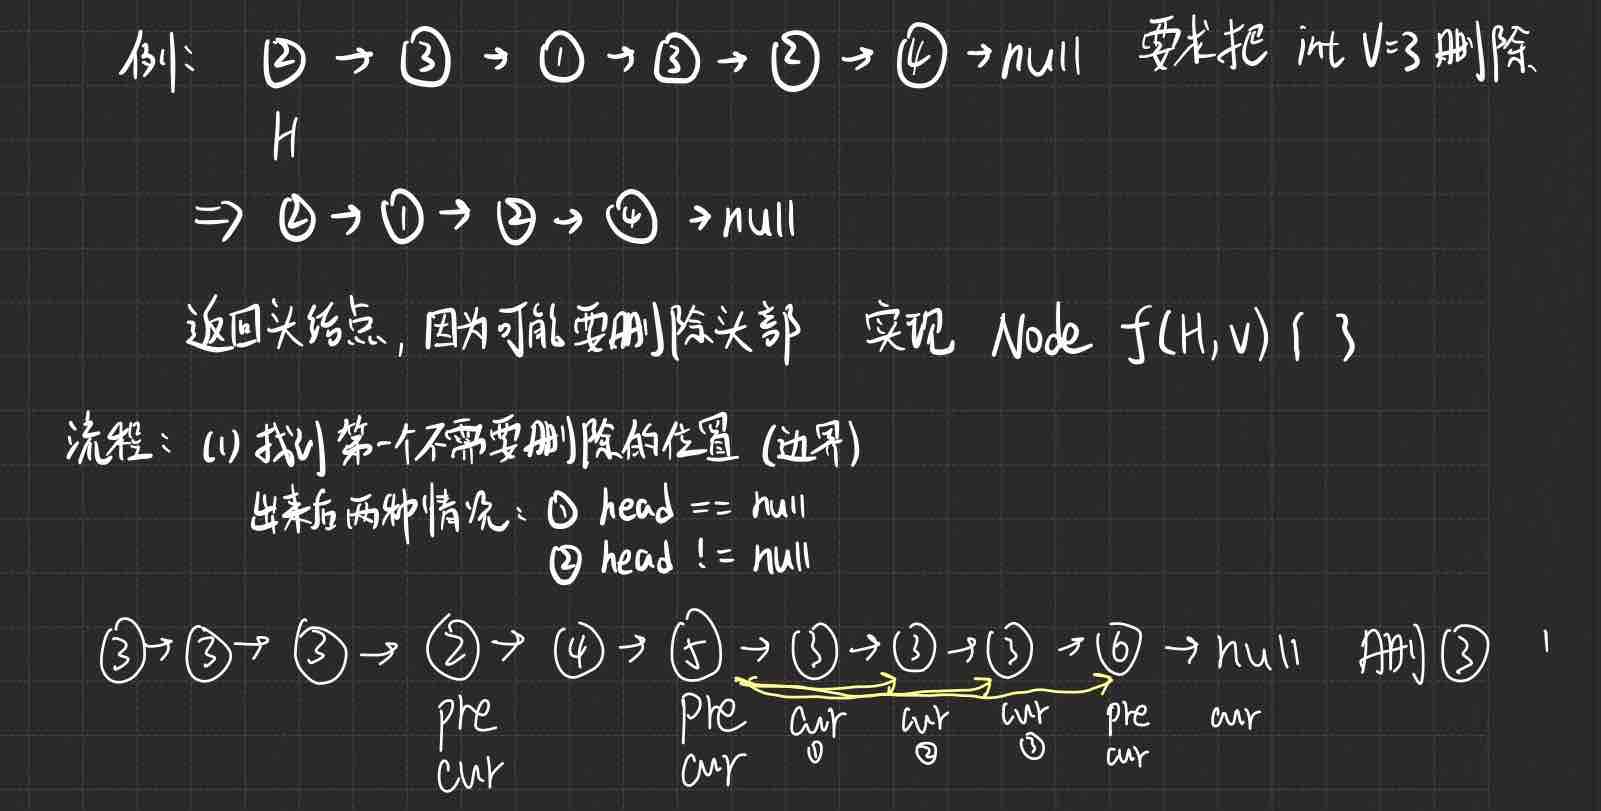 例: ② → ③ → ① → ③ → ② → ④ → null 要求把 int V=3 删除
H
⇒ ② → ① → ② → ④ → null
返回头结点, 因为可能要删除头部 实现 Node f(H, V) { }
流程: (1) 找到第一个不需要删除的位置 (边界)
出来后两种情况: ① head == null
② head != null
③ → ③ → ③ → ② → ④ → ⑤ → ③ → ③ → ③ → ⑥ → null 删③
pre pre cur cur cur pre cur
cur cur ① ② ③ cur